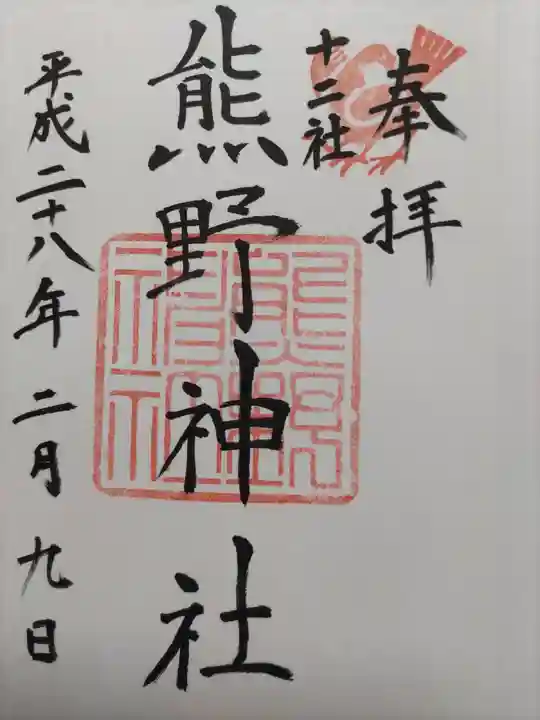 奉拝
十二社
熊野神社
平成二十八年二月九日
熊野神社